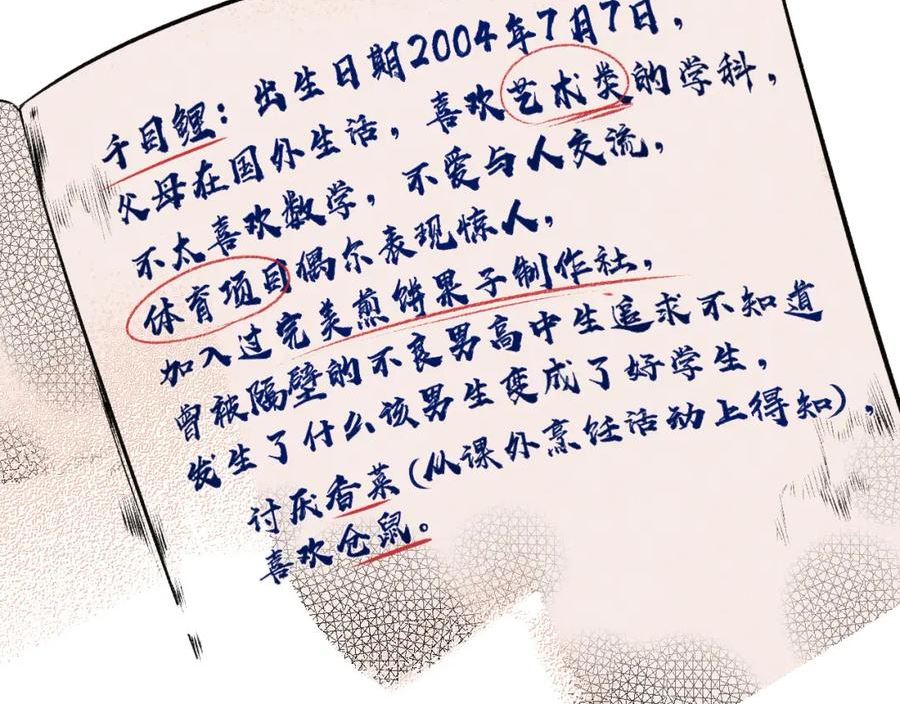 千目鲤：出生日期2004年7月7日，
父母在国外生活，喜欢艺术类的学科，
不太喜欢数学，不爱与人交流，
体育项目偶尔表现惊人，
加入过完美煎饼果子制作社，
曾被隔壁的不良男高中生追求不知道
发生了什么该男生变成了好学生，
讨厌香菜（从课外烹饪活动上得知），
喜欢仓鼠。